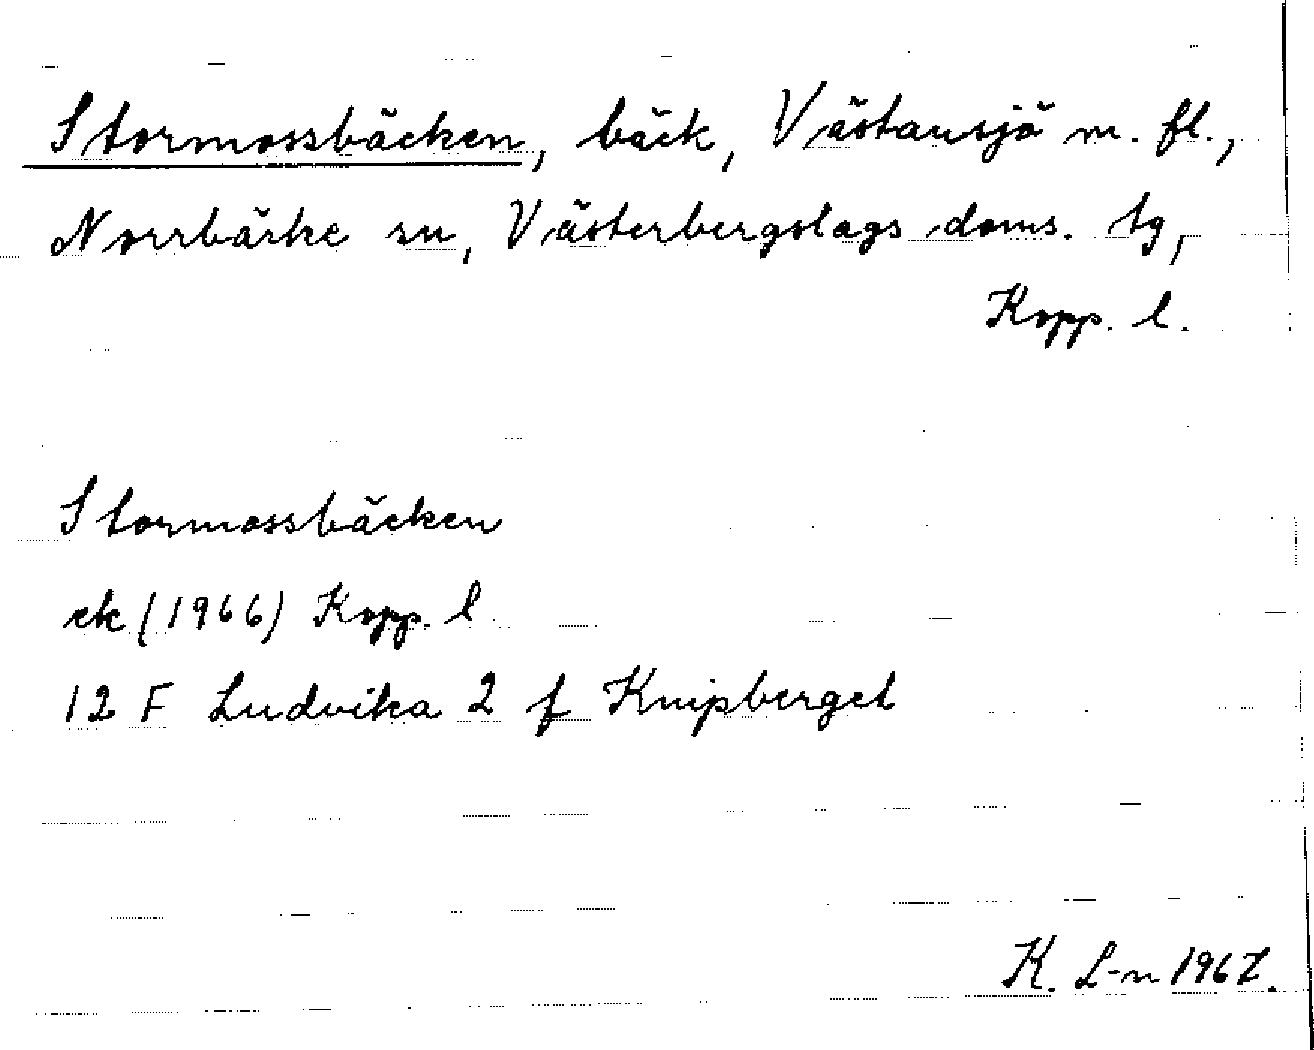 Stormossbäcken, bäck, Västansjö m. fl.,
Norrbärke sn, Västerbergslags doms. tg,
Kopp. l.
Stormossbäcken
ek (1966) Kopp. l
12 F Ludvika 2 f Knipberget
K. L-n 1967.